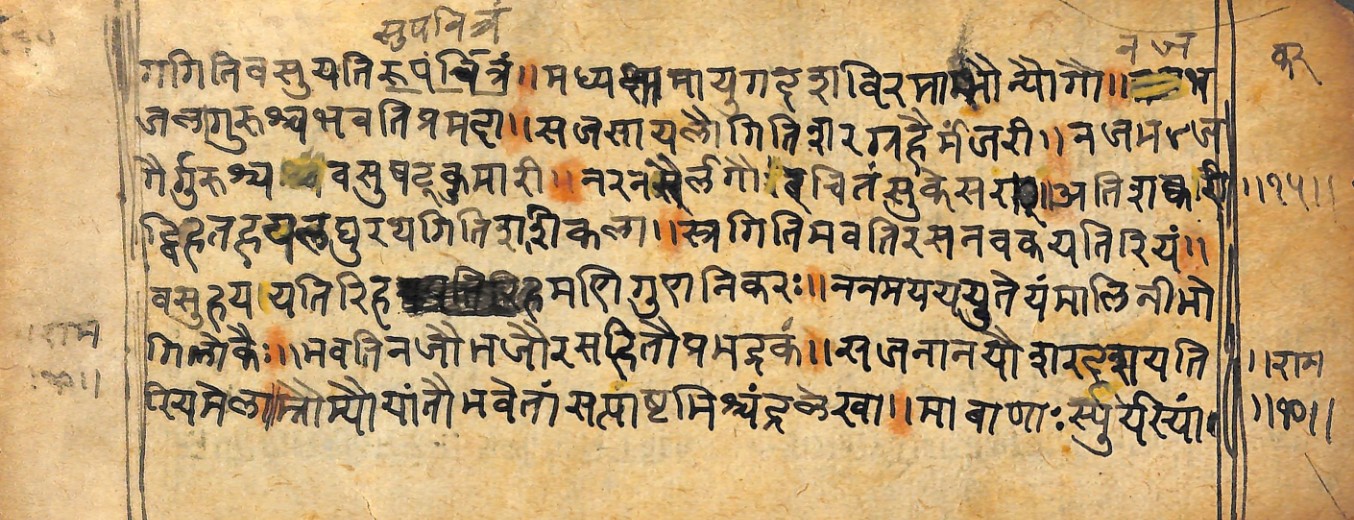 सुपवित्रं
न ज
कर
गगितिवसुयतिरूपंचित्रं॥मध्य मायुगदृशविरमा म्यौगौ॥ भ
जलागुरूश्चभवतिप्रमदा॥सजसायलौगितिशरग्रहैर्मंजरी॥नजमजज
गैर्गुरूश्च वसुषट्कुमारी॥नरन र्लगौ रचितंसुकेसरं॥अतिशक्वरी॥१५॥
द्विहतहयलघुरथगितिशशीकला॥स्त्रगितिभवतिरसनवकयतिरियं॥
वसुहययतिरिह मणिगुणनिकरः॥ननमयययुतेयंमालिनीभो
गिलोकैः॥भवतिनजौभजौरसहितौप्रभद्रकं॥सजनानयौशरदृक्सयति
॥राम
रियमेला॥म्रौम्यौयांतौभवेतांसप्ताष्टभिश्चंद्रलेखा॥माबाणाःस्युर्यस्यां
॥१०॥